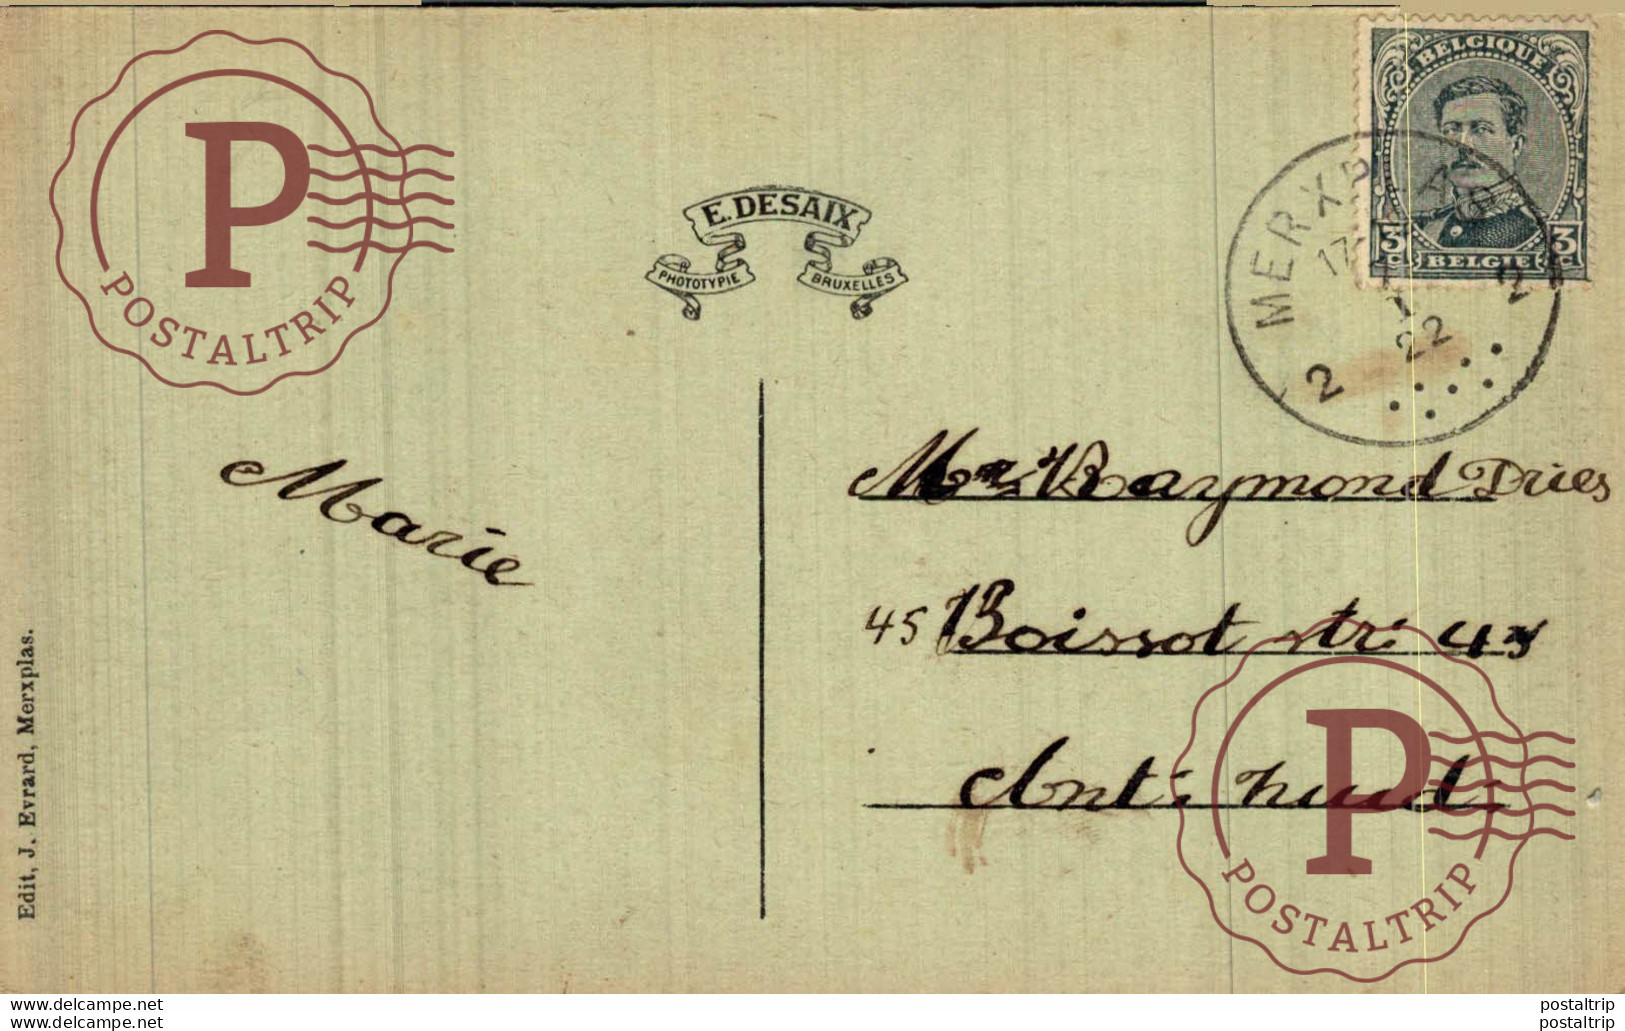 BELGIQUE
3c BELGIË 3c
MERXPLAS
22
2 2
E. DESAIX
PHOTOTYPIE BRUXELLES
P
POSTALTRIP
Marie
Mr Raymond Dries
45 Boissot str: 45
Ant:
Edit, J. Evrard, Merxplas.
P
POSTALTRIP
www.delcampe.net postaltrip
www.delcampe.net postaltrip